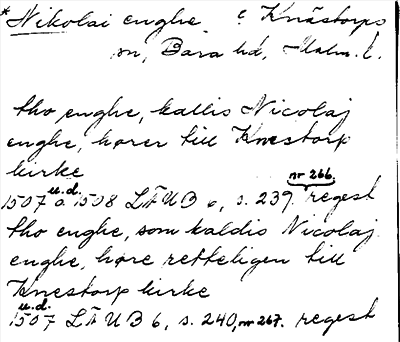 * Nikolai enghe i Knästorps
sn, Bara hd, Malm. l.
tho enghe, kallis Nicolaj
enghe, hører till Knestorp
kirke
nr 266.
1507 u.d. à 1508 LÄUB 6, s. 239 regest
tho enghe, som kaldis Nicolaj
enghe, høre retteligen till
Knestorp kirke
u.d.
1507 LÄUB 6, s. 240, nr 267. regest